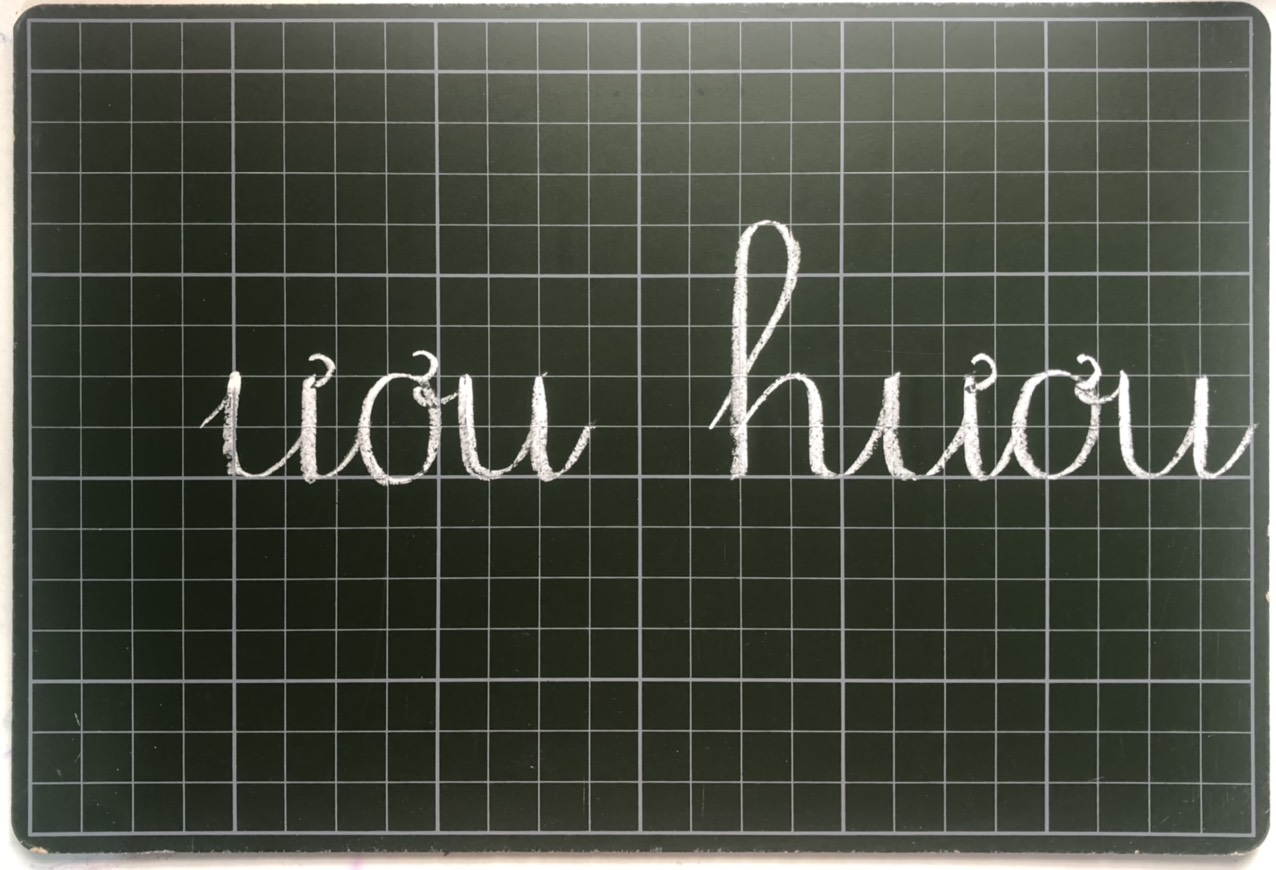 ươu hươu